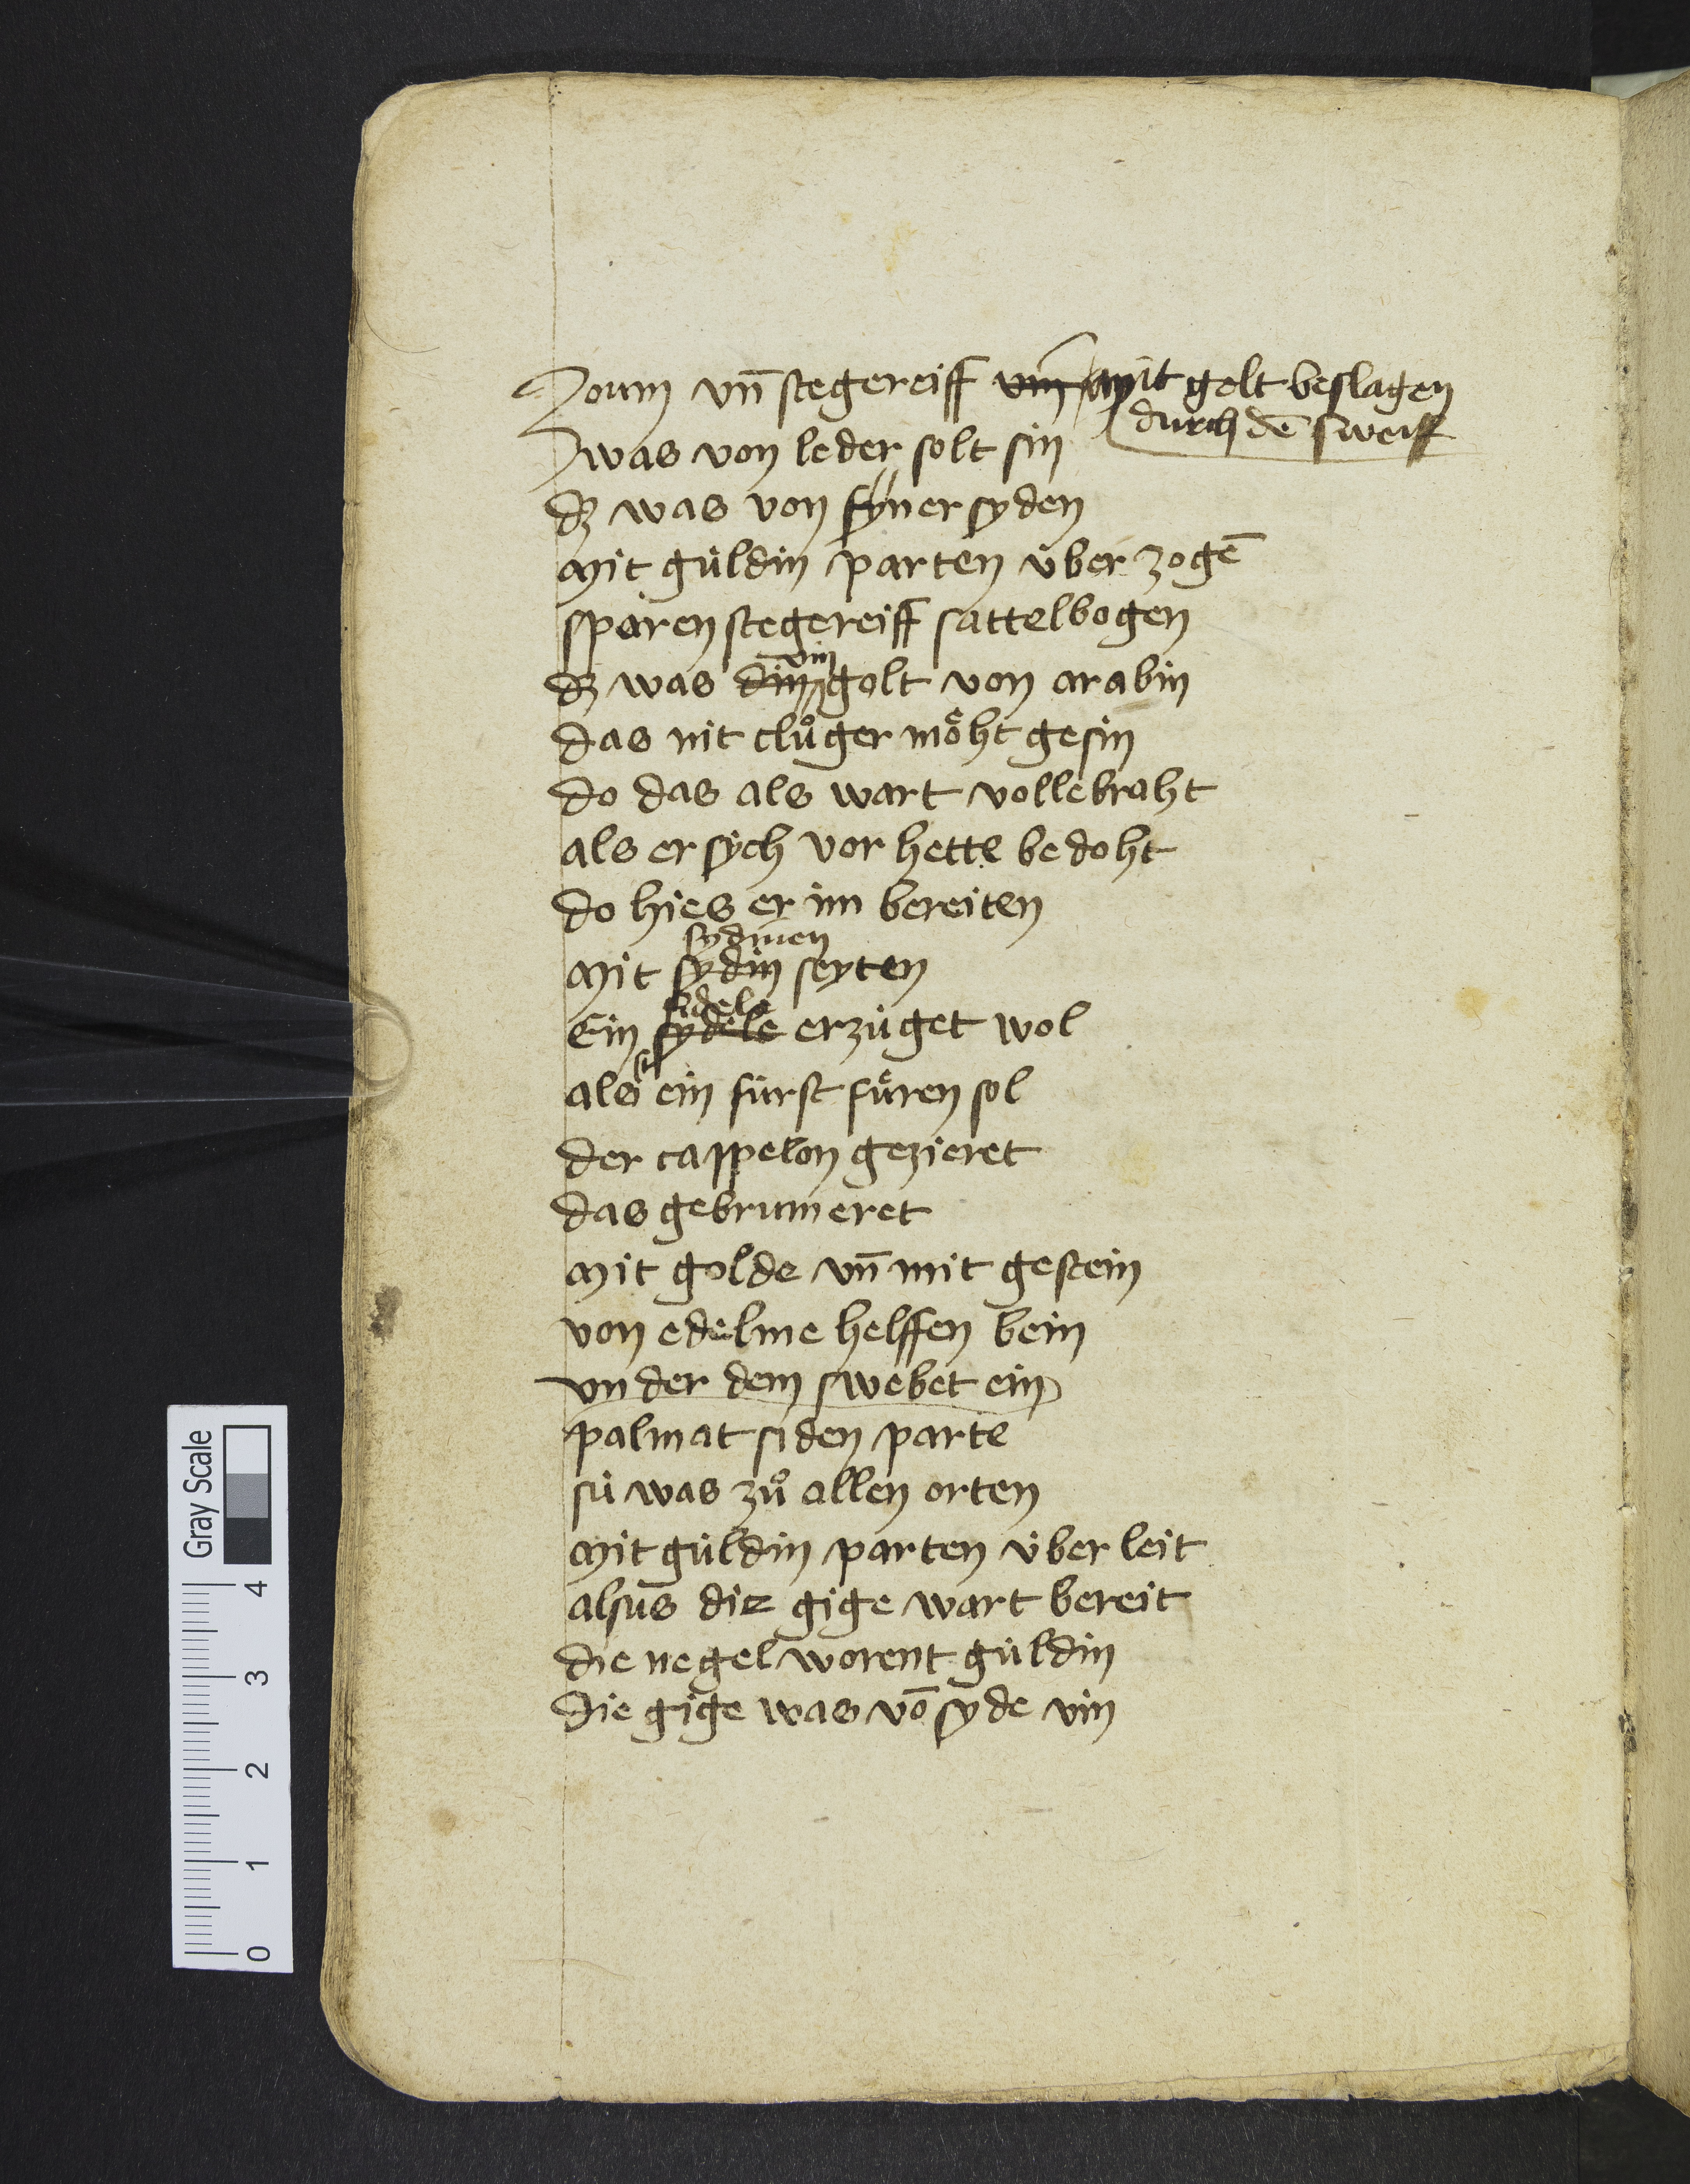 Zoum vn̄ stegereiff vm̄ mit golt beslagen
durch dē sweiff
was von leder solt sin
dz was von fyner syden
mit guldin parten über zogē
sparen stegereiff sattelbogen
vin
dz was din golt von arabin
das nit clůger moͤht gesin
do das als wart vollebraht
als er sych vor hette bedoht
do hies er im bereiten
sydinen
mit sydin seyten
fidele
Ein sydele erzüget wol
sü
als ein fürst fuͤren sol
der cappelon gezieret
das gebrumeret
mit golde vn̄ mit gestein
von edelme helffen bein
vnder dem swebet ein
palmat siden parte
sü was zů allen orten
mit güldin parten über leit
alsus die gige wart bereit
die negel worent güldin
die gige was vō syde vin
Gray Scale
0 1 2 3 4